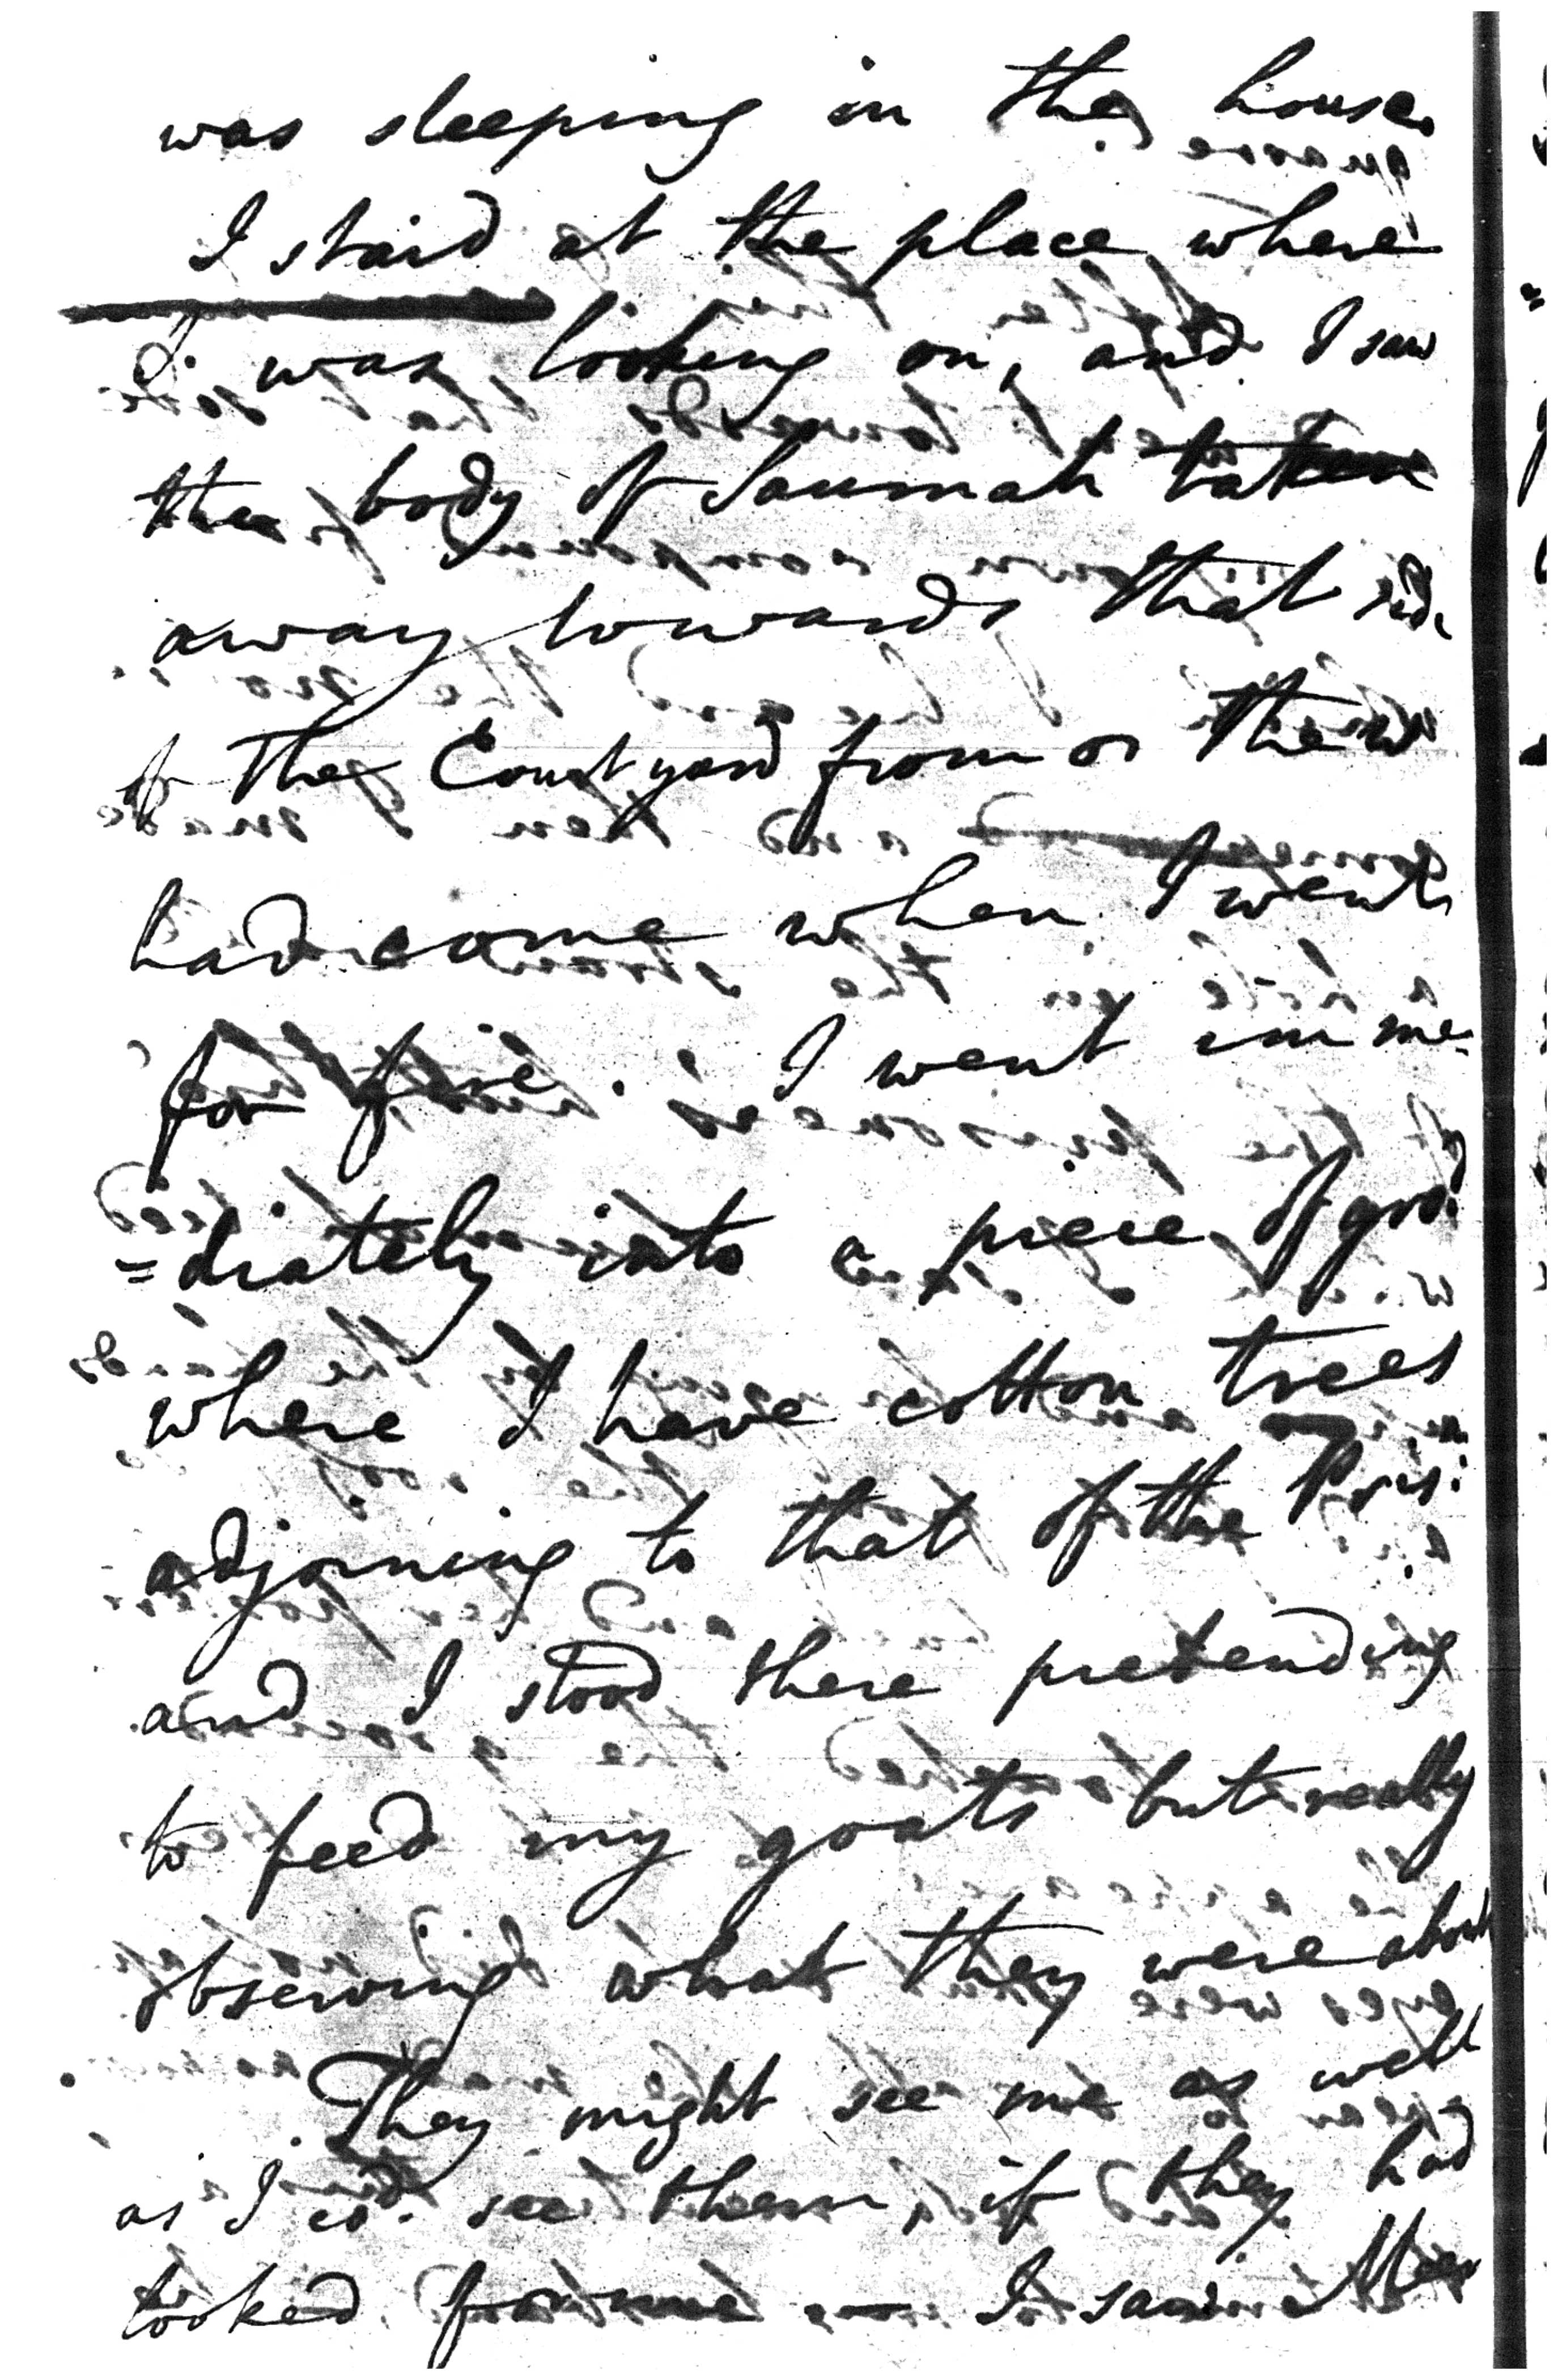 was sleeping in the house.
I staid at the place where
I was looking on, and I saw
the body of Saumah taken
away towards that side
of the Court yard from
had come when I went
for fire. I went imme-
=diately into a piece of
where I have cotton trees
adjoining to that of the Pris:
and I stood there pretending
to feed my goats but really
observing what they were about
They might see me as well
as I cd. see them, if they had
looked for me — I saw